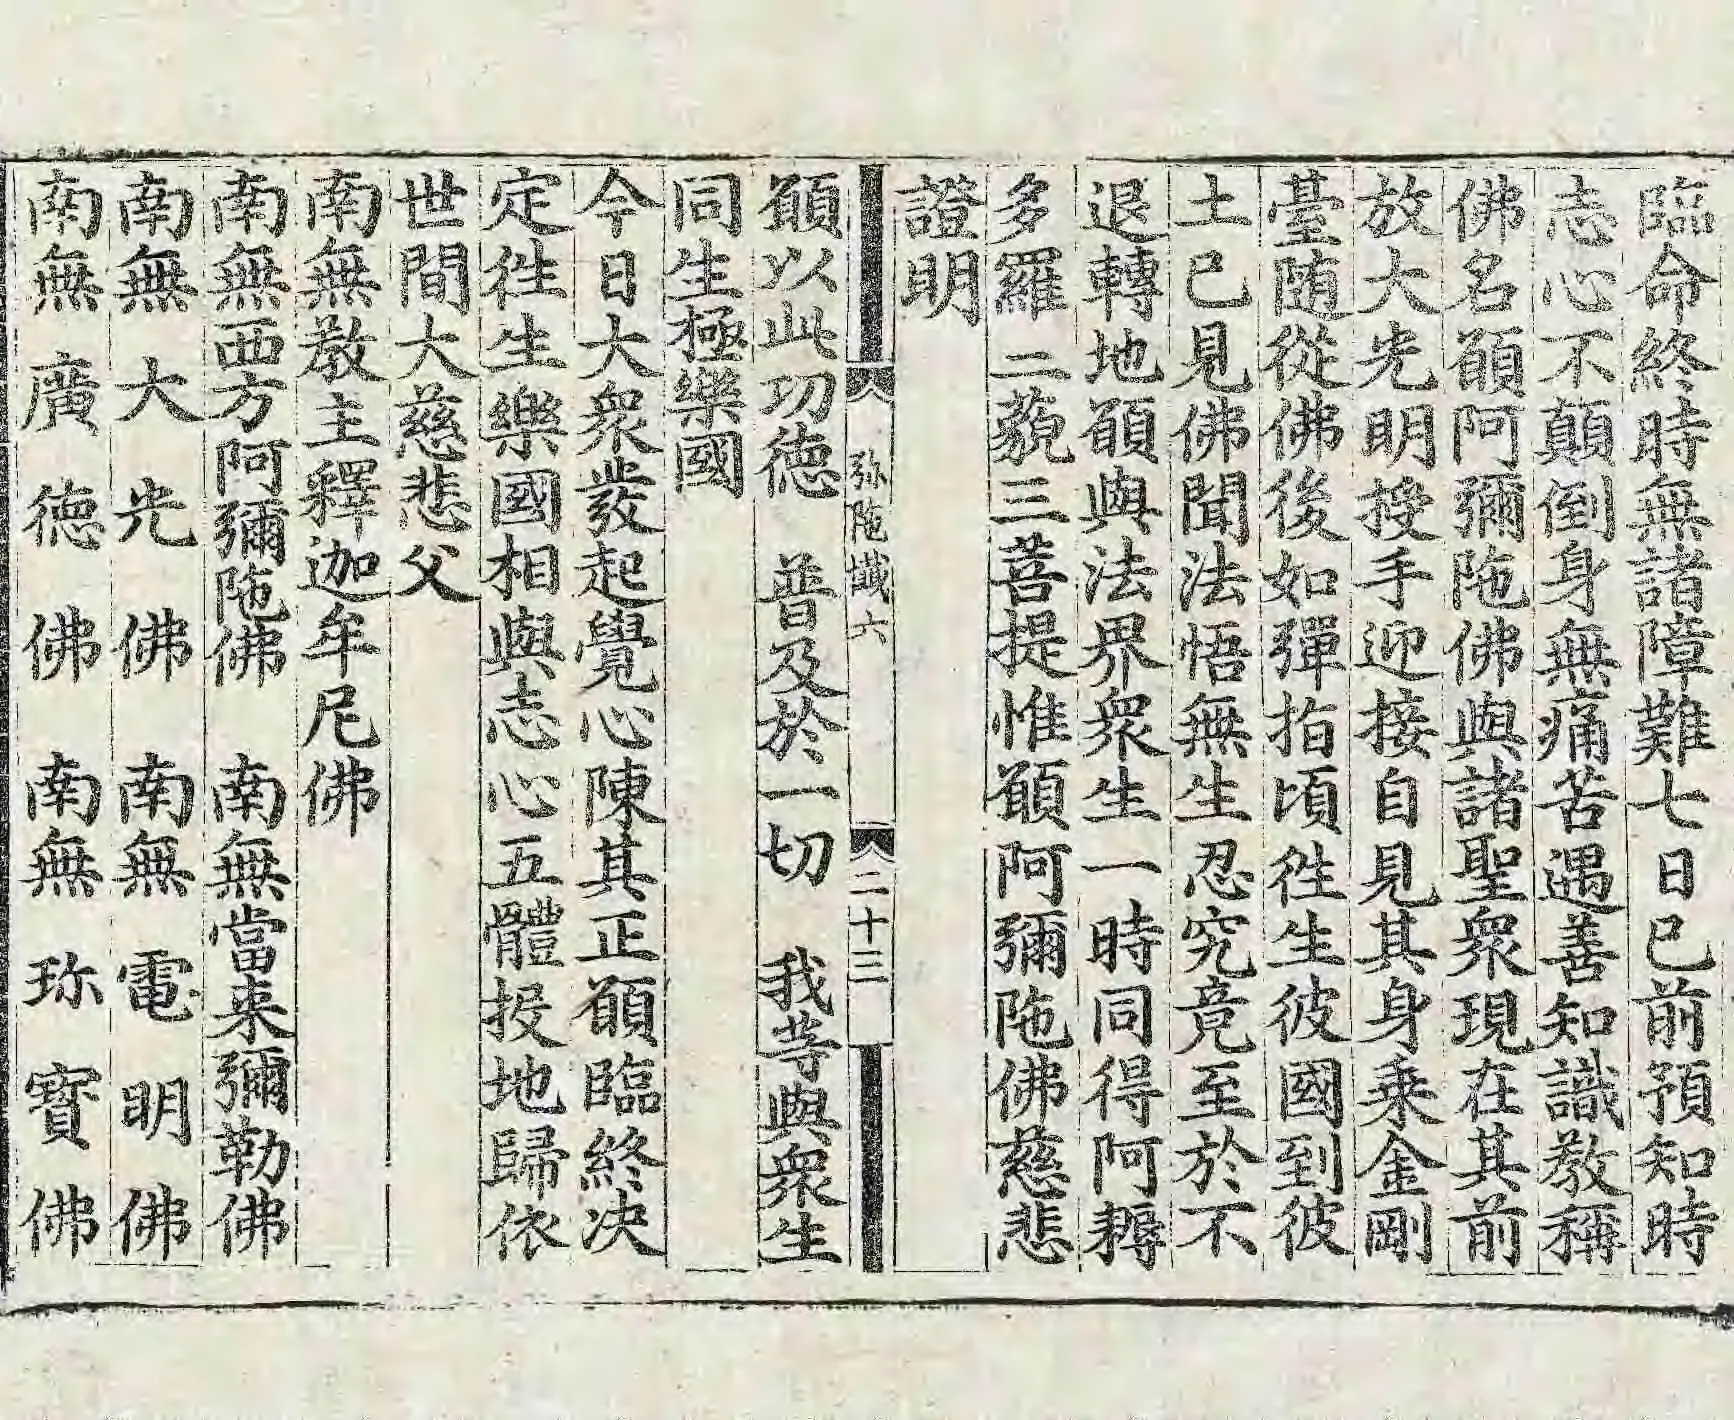 臨命終時無諸障難七日已前預知時
志心不顛倒身無痛苦遇善知識教稱
佛名願阿彌陁佛與諸聖衆現在其前
放大光明授手迎接自見其身乗金剛
臺随從佛後如彈指頃徃生彼國到彼
土已見佛聞法悟無生忍究竟至於不
退轉地願與法界衆生一時同得阿耨
多羅二藐三菩提惟願阿彌陁佛慈悲
證明
弥陁懺六
二十三
願以此功德　普及於一切　我等與衆生
同生極樂國
今日大衆發起覺心陳其正願臨終决
定徃生樂國相與志心五體投地歸依
世間大慈悲父
南無教主釋迦牟尼佛
南無西方阿彌陁佛　南無當来彌勒佛
南無大光佛　南無電明佛
南無廣德佛　南無珎寳佛